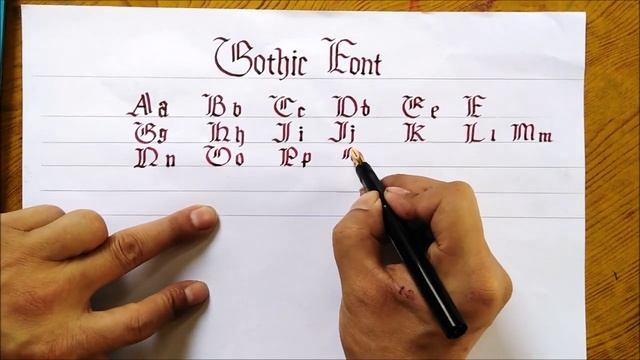 Gothic Font
Aa Bb Cc Db Ee F
Gg Hh Ii Jj K Ll Mm
Nn Oo Pp